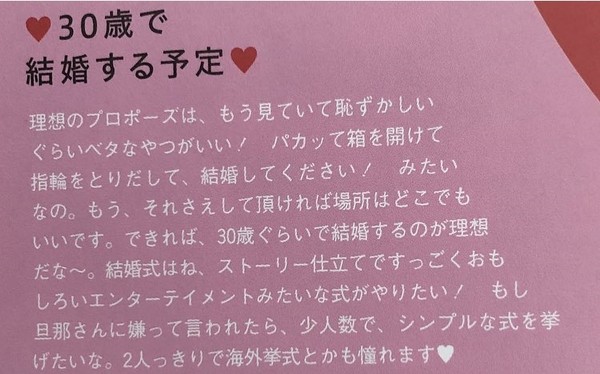 ♥30歳で
結婚する予定♥
理想のプロポーズは、もう見ていて恥ずかしい
ぐらいベタなやつがいい! パカッて箱を開けて
指輪をとりだして、結婚してください! みたい
なの。もう、それさえして頂ければ場所はどこでも
いいです。できれば、30歳ぐらいで結婚するのが理想
だな〜。結婚式はね、ストーリー仕立てですっごくおも
しろいエンターテイメントみたいな式がやりたい! もし
旦那さんに嫌って言われたら、少人数で、シンプルな式を挙
げたいな。2人っきりで海外挙式とかも憧れます♥